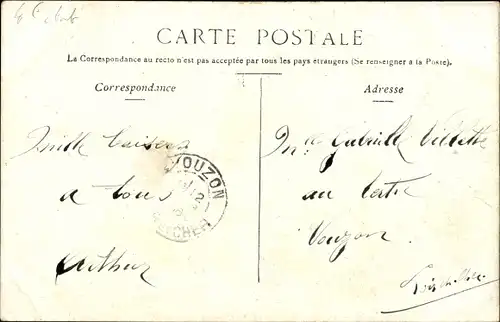 CARTE POSTALE
La Correspondance au recto n'est pas acceptée par tous les pays étrangers (Se renseigner à la Poste).
Correspondance
Mille baisers
à tous
Arthur
VOUZON
LOIR-ET-CHER
Adresse
Mlle Gabrielle Villette
au
Vouzon
Loir et Cher